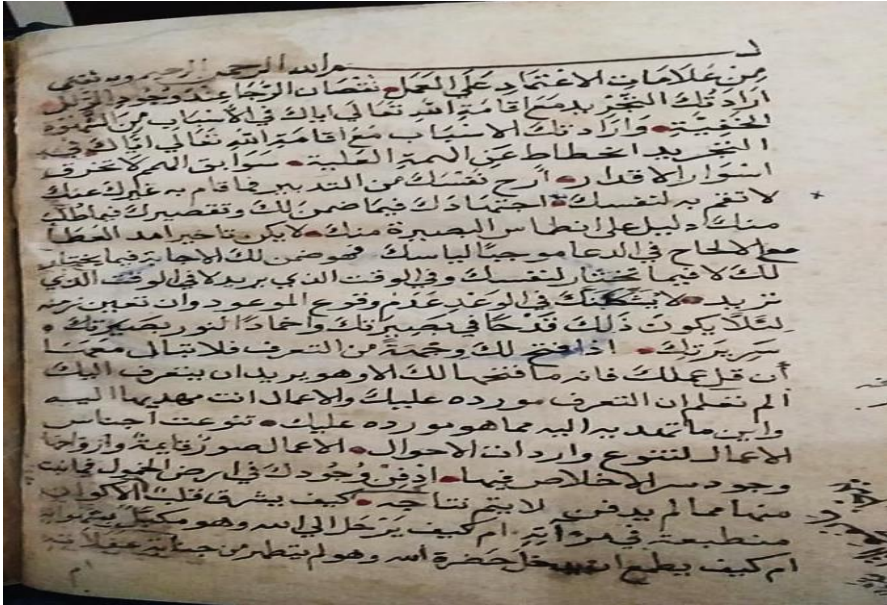 بسم الله الرحمن الرحيم وبه ثقتي
من علامات الاعتماد على العمل نقصان الرجا عند وجود الزلل
ارادتك التجريد مع اقامة الله تعالى اياك في الاسباب من الشهوة
الخفية وارادتك الاسباب مع اقامة الله تعالى اياك في
التجريد انحطاط عن الهمة العلية سوابق الهمم لا تخرق
اسوار الاقدار أرح نفسك من التدبير فما قام به غيرك عنك
لا تقم به لنفسك اجتهادك فيما ضمن لك وتقصيرك فيما طلب
منك دليل على انطماس البصيرة منك لا يكن تاخير امد العطا
مع الالحاح في الدعا موجبا لياسك فهو ضمن لك الاجابة فيما يختار
لك لا فيما تختار لنفسك وفي الوقت الذي يريد لا في الوقت الذي
تريد لا يشككنك في الوعد عدم وقوع الموعود وان تعين زمنه
لئلا يكون ذلك قدحا في بصيرتك واخمادا لنور بصيرتك
سريرتك اذا فتح لك وجهة من التعرف فلا تبال معها
أن قل عملك فانه ما فتحها لك الا وهو يريد ان يتعرف اليك
الم تعلم ان التعرف مورده عليك والاعمال انت مهديها اليه
واين ما تهديه اليه مما هو مورده عليك تنوعت اجناس
الاعمال لتنوع واردات الاحوال الاعمال صور قايمة وارواحها
وجود سر الاخلاص فيها ادفن وجودك في ارض الخمول فما نبت
منها مما لم يدفن لا يتم نتاجه كيف يشرق قلب الاكوان
منطبعة في مرآته ام كيف يرحل الى الله وهو مكبل بشهواته
ام كيف يطمع ان يدخل حضرة الله وهو لم يتطهر من جنابة غفلاته
ام